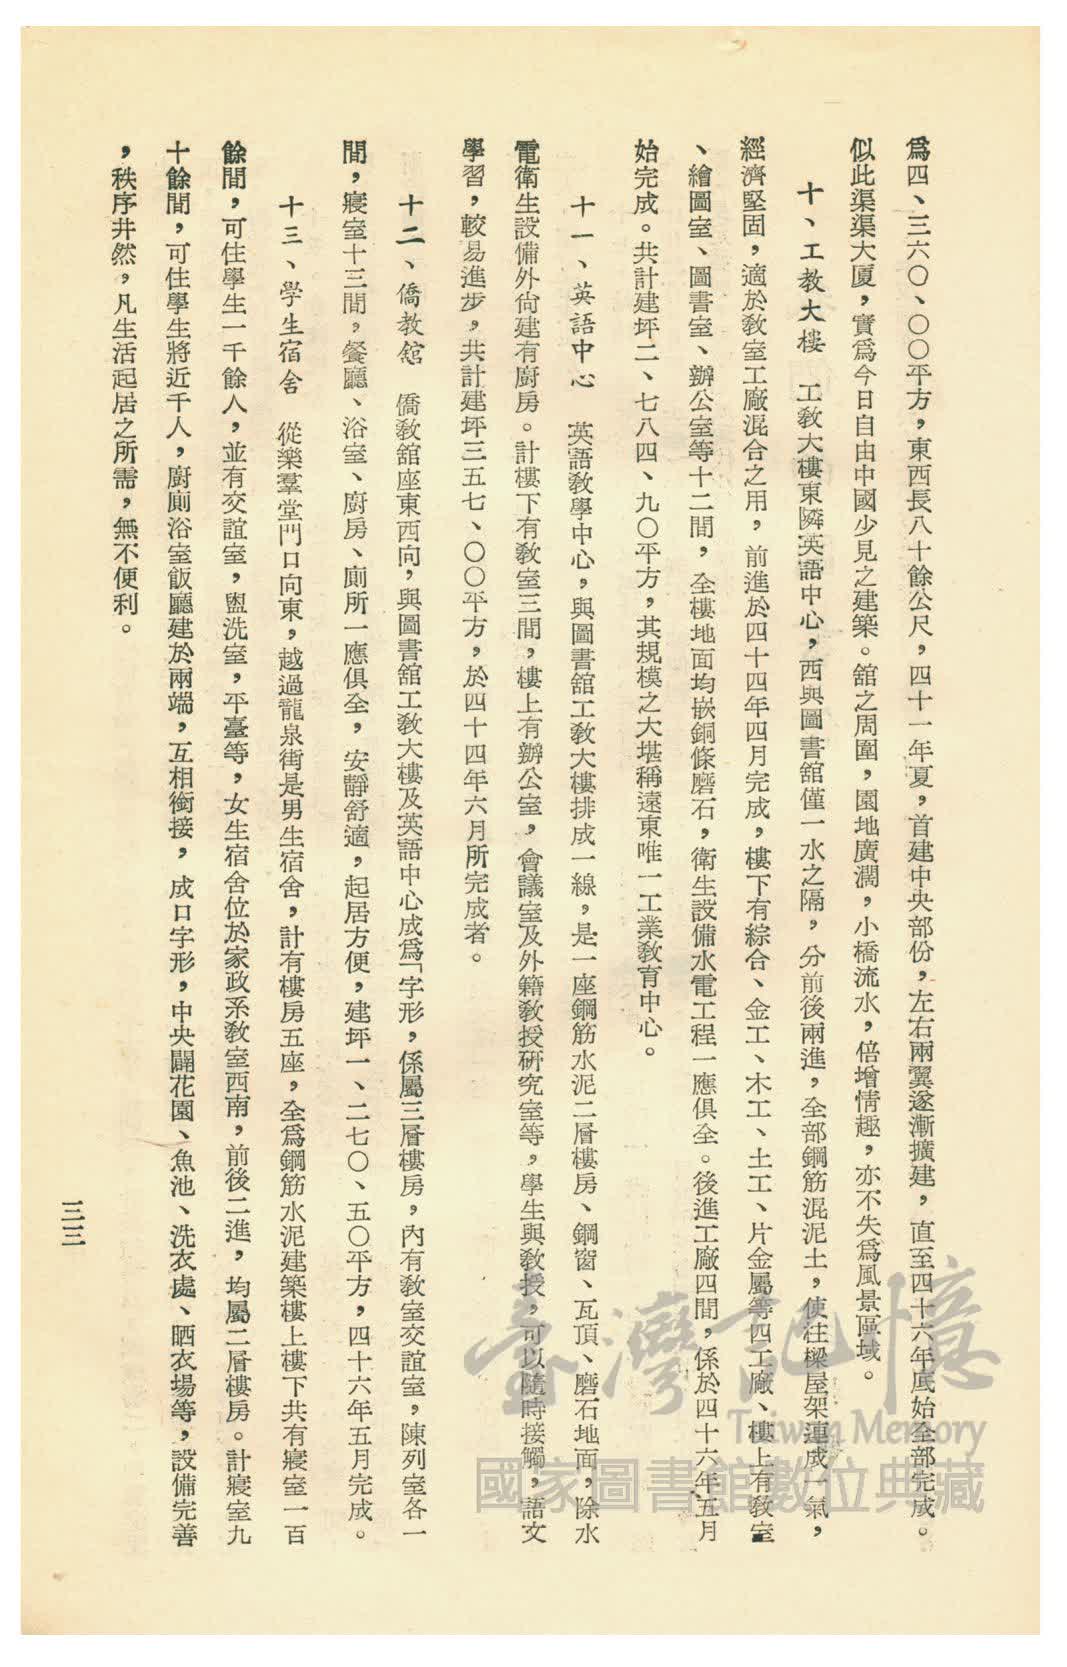 爲四、三六〇、〇〇平方，東西長八十餘公尺，四十一年夏，首建中央部份，左右兩翼遂漸擴建，直至四十六年底始全部完成。
似此渠渠大厦，實爲今日自由中國少見之建築。舘之周圍，園地廣濶，小橋流水，倍增情趣，亦不失爲風景區域。
十、工教大樓　工教大樓東隣英語中心，西與圖書舘僅一水之隔，分前後兩進，全部鋼筋混泥土，使柱樑屋架連成一氣，
經濟堅固，適於教室工廠混合之用，前進於四十四年四月完成，樓下有綜合、金工、木工、土工、片金屬等四工廠、樓上有教室
、繪圖室、圖書室、辦公室等十二間，全樓地面均嵌銅條磨石，衛生設備水電工程一應俱全。後進工廠四間，係於四十六年五月
始完成。共計建坪二、七八四、九〇平方，其規模之大堪稱遠東唯一工業教育中心。
十一、英語中心　英語教學中心，與圖書舘工教大樓排成一線，是一座鋼筋水泥二層樓房、鋼窗、瓦頂、磨石地面，除水
電衛生設備外尙建有廚房。計樓下有教室三間，樓上有辦公室，會議室及外籍教授研究室等，學生與教授，可以隨時接觸，語文
學習，較易進步，共計建坪三五七、〇〇平方，於四十四年六月所完成者。
十二、僑教舘　僑教舘座東西向，與圖書舘工教大樓及英語中心成爲「字形，係屬三層樓房，內有教室交誼室，陳列室各一
間，寢室十三間，餐廳、浴室、廚房、廁所一應俱全，安靜舒適，起居方便，建坪一、二七〇、五〇平方，四十六年五月完成。
十三、學生宿舍　從樂羣堂門口向東，越過龍泉街是男生宿舍，計有樓房五座，全爲鋼筋水泥建築樓上樓下共有寢室一百
餘間，可住學生一千餘人，並有交誼室，盥洗室，平臺等，女生宿舍位於家政系教室西南，前後二進，均屬二層樓房。計寢室九
十餘間，可住學生將近千人，廚廁浴室飯廳建於兩端，互相銜接，成口字形，中央闢花園、魚池、洗衣處、晒衣場等，設備完善
，秩序井然，凡生活起居之所需，無不便利。
三三
臺灣記憶
Taiwan Memory
國家圖書館數位典藏